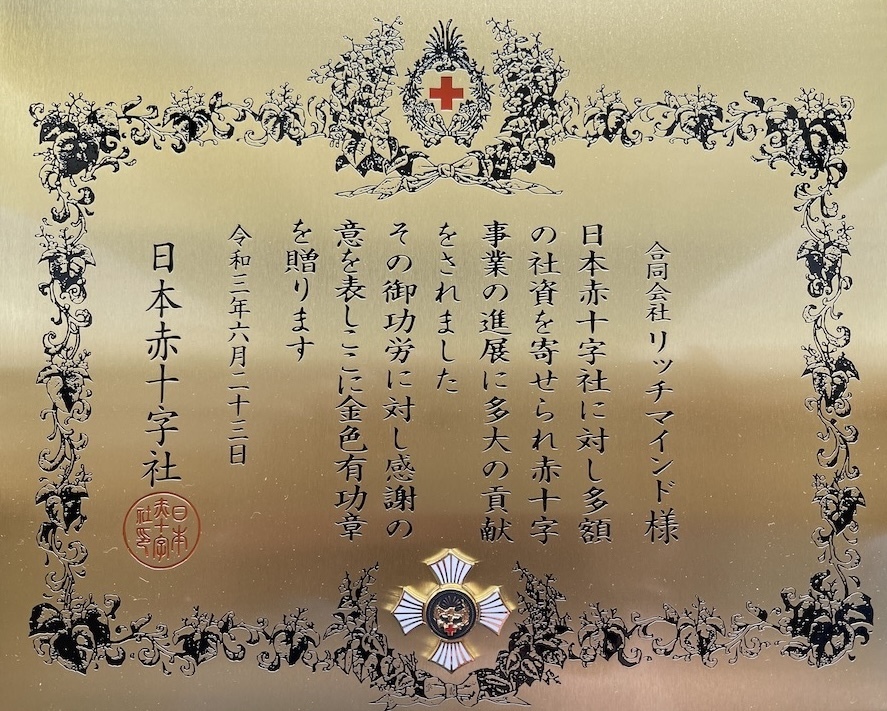 合同会社リッチマインド様
日本赤十字社に対し多額
の社資を寄せられ赤十字
事業の進展に多大の貢献
をされました
その御功労に対し感謝の
意を表しここに金色有功章
を贈ります
令和三年六月二十三日
日本赤十字社
日本
赤十字
社印